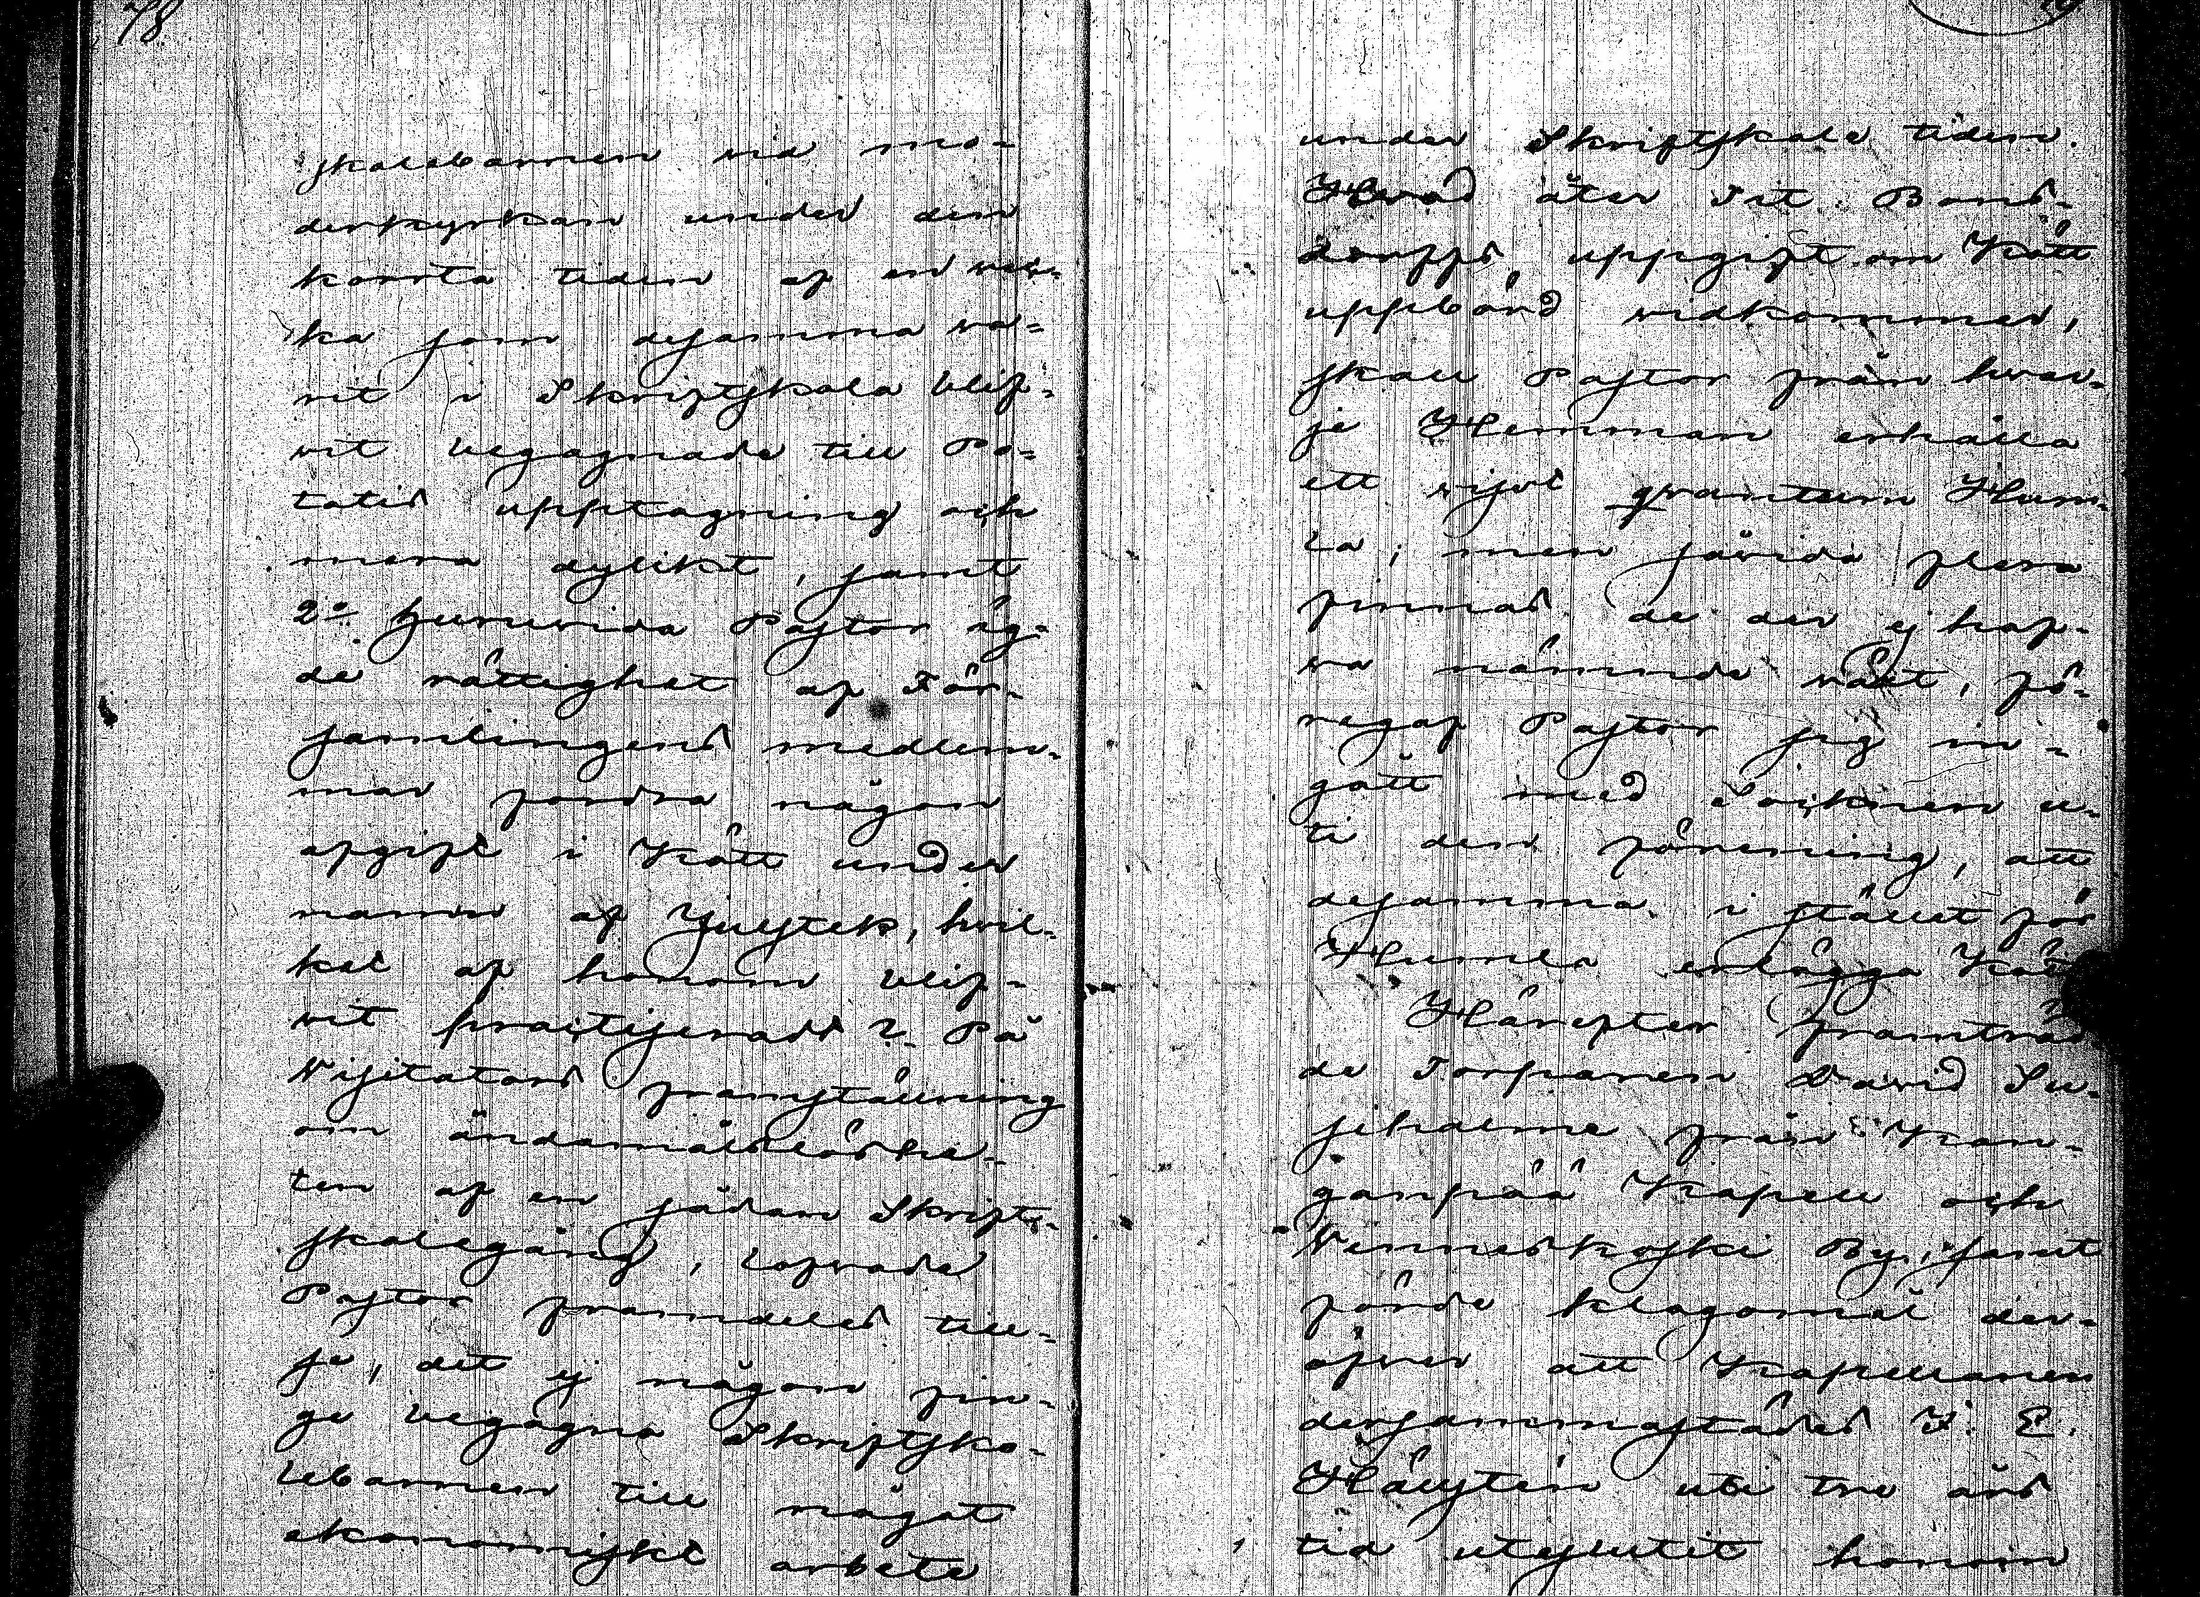 78
skolebarnen vid mo-
derkyrkan under den
korrta tiden af en vec-
ka som desamma va-
rit i Skriftskola blif-
vit begagnade till Po-
tatis upptagning och
mera dylikt, samt
2:o huruvida Pastor äg-
de rättighet af För-
samlingens medlem-
mar fordra någon
afgift i Kött under
namn af Julstek, hvil-
ket af honom blif-
vit practiseradt? På
Visitators framställning
om ändamålslöshe-
ten af en sådan Skrift-
skolegång, lofvade
Pastor framdeles till-
se, det ej någon fin-
ge begagna Skriftsko-
lebarnen till något
ekonomiskt arbete
under Skriftskole tiden.
Hvad åter Tit. Bons-
dorffs uppgift om Kött
uppbörd vidkommer,
skall Pastor från hvar-
je Hemman erhålla
ett visst quantum Hum-
la; men såvida flera
finnas de der ej haf-
va nämnde växt, fö-
regaf Pastor sig in-
gått med Socknen u-
ti den förening, att
desamma i stället för
Humla erlägga Kött
Härefter framträd
de Torparen David Su-
sihalme från Kan-
ganpää Kapell och
Venneskoski By, samt
förde klagomål der-
öfver att Kapellanen
dersammastädes F. E.
Hällsten uti tre års
tid uteslutit honom